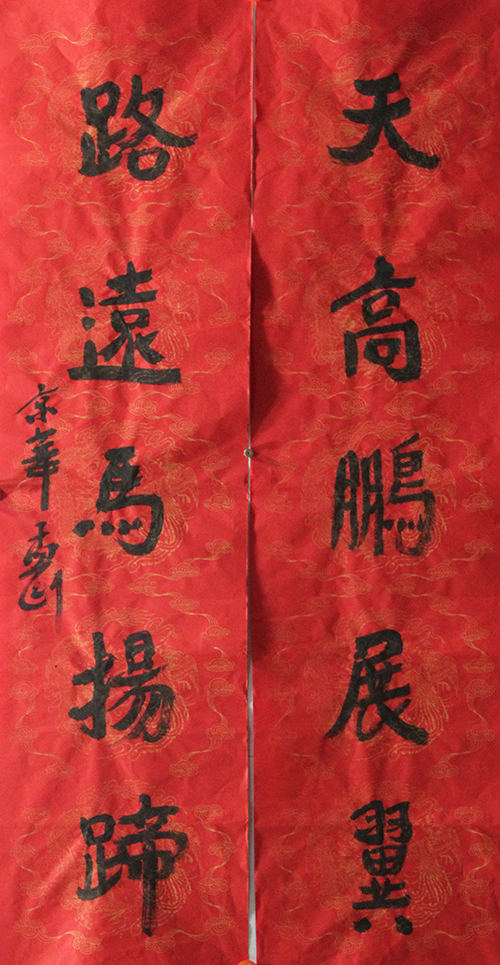 天高鹏展翼
路遠馬揚蹄
京華